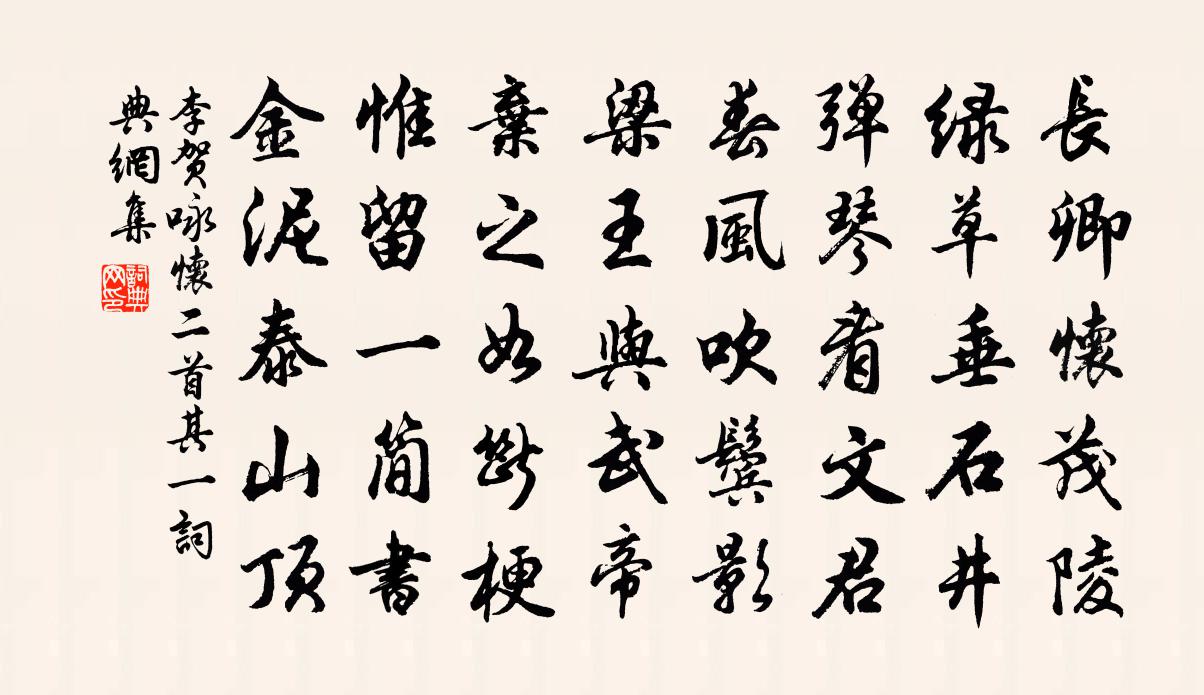 長卿懷茂陵
緑草垂石井
弾琴看文君
春風吹鬢影
梁王與武帝
棄之如斷梗
惟留一簡書
金泥泰山頂
李贺咏懷二首其一詞
典網集
詞典
网印